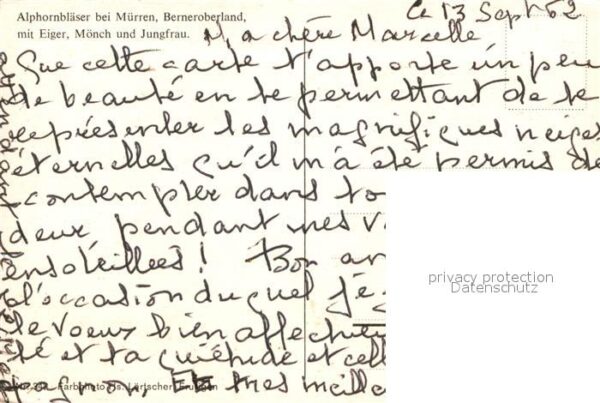 Alphornbläser bei Mürren, Berneroberland,
mit Eiger, Mönch und Jungfrau.
Ce 13 Sept 62
Ma chère Marcelle
Que cette carte t'apporte un peu
de beauté en te permettant de te
représenter les magnifiques neiges
éternelles qu'il m'a été permis de
contempler dans to
deur pendant mes v
ensoleillées ! Bon an
à l'occasion duquel je
te voeux bien affectueu
té et ta quiétude et cell
très meille
privacy protection
Datenschutz